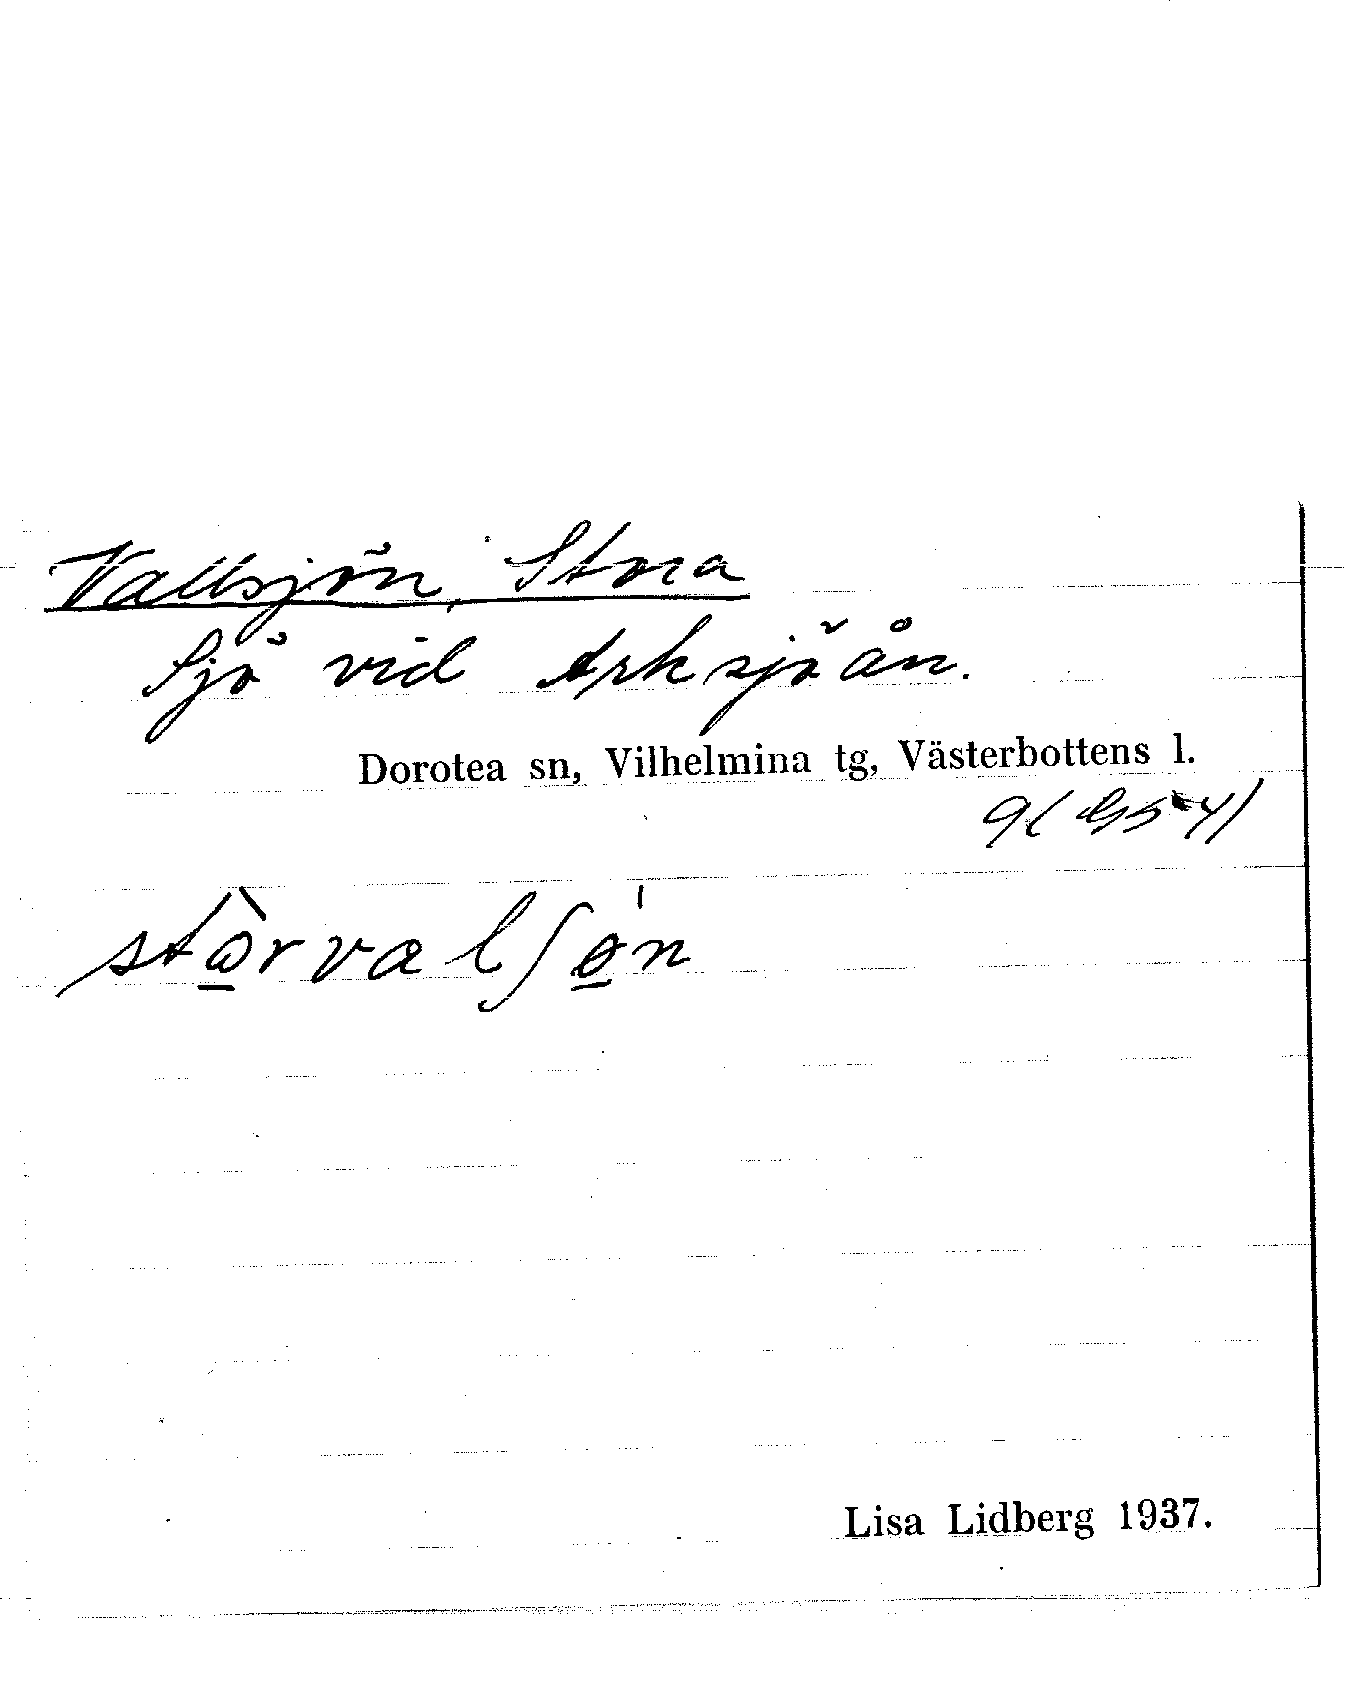 Vallsjön, Stora
Sjö vid Arksjöån.
Dorotea sn, Vilhelmina tg, Västerbottens l.
stòrvalʃǿ̱n
Lisa Lidberg 1937.